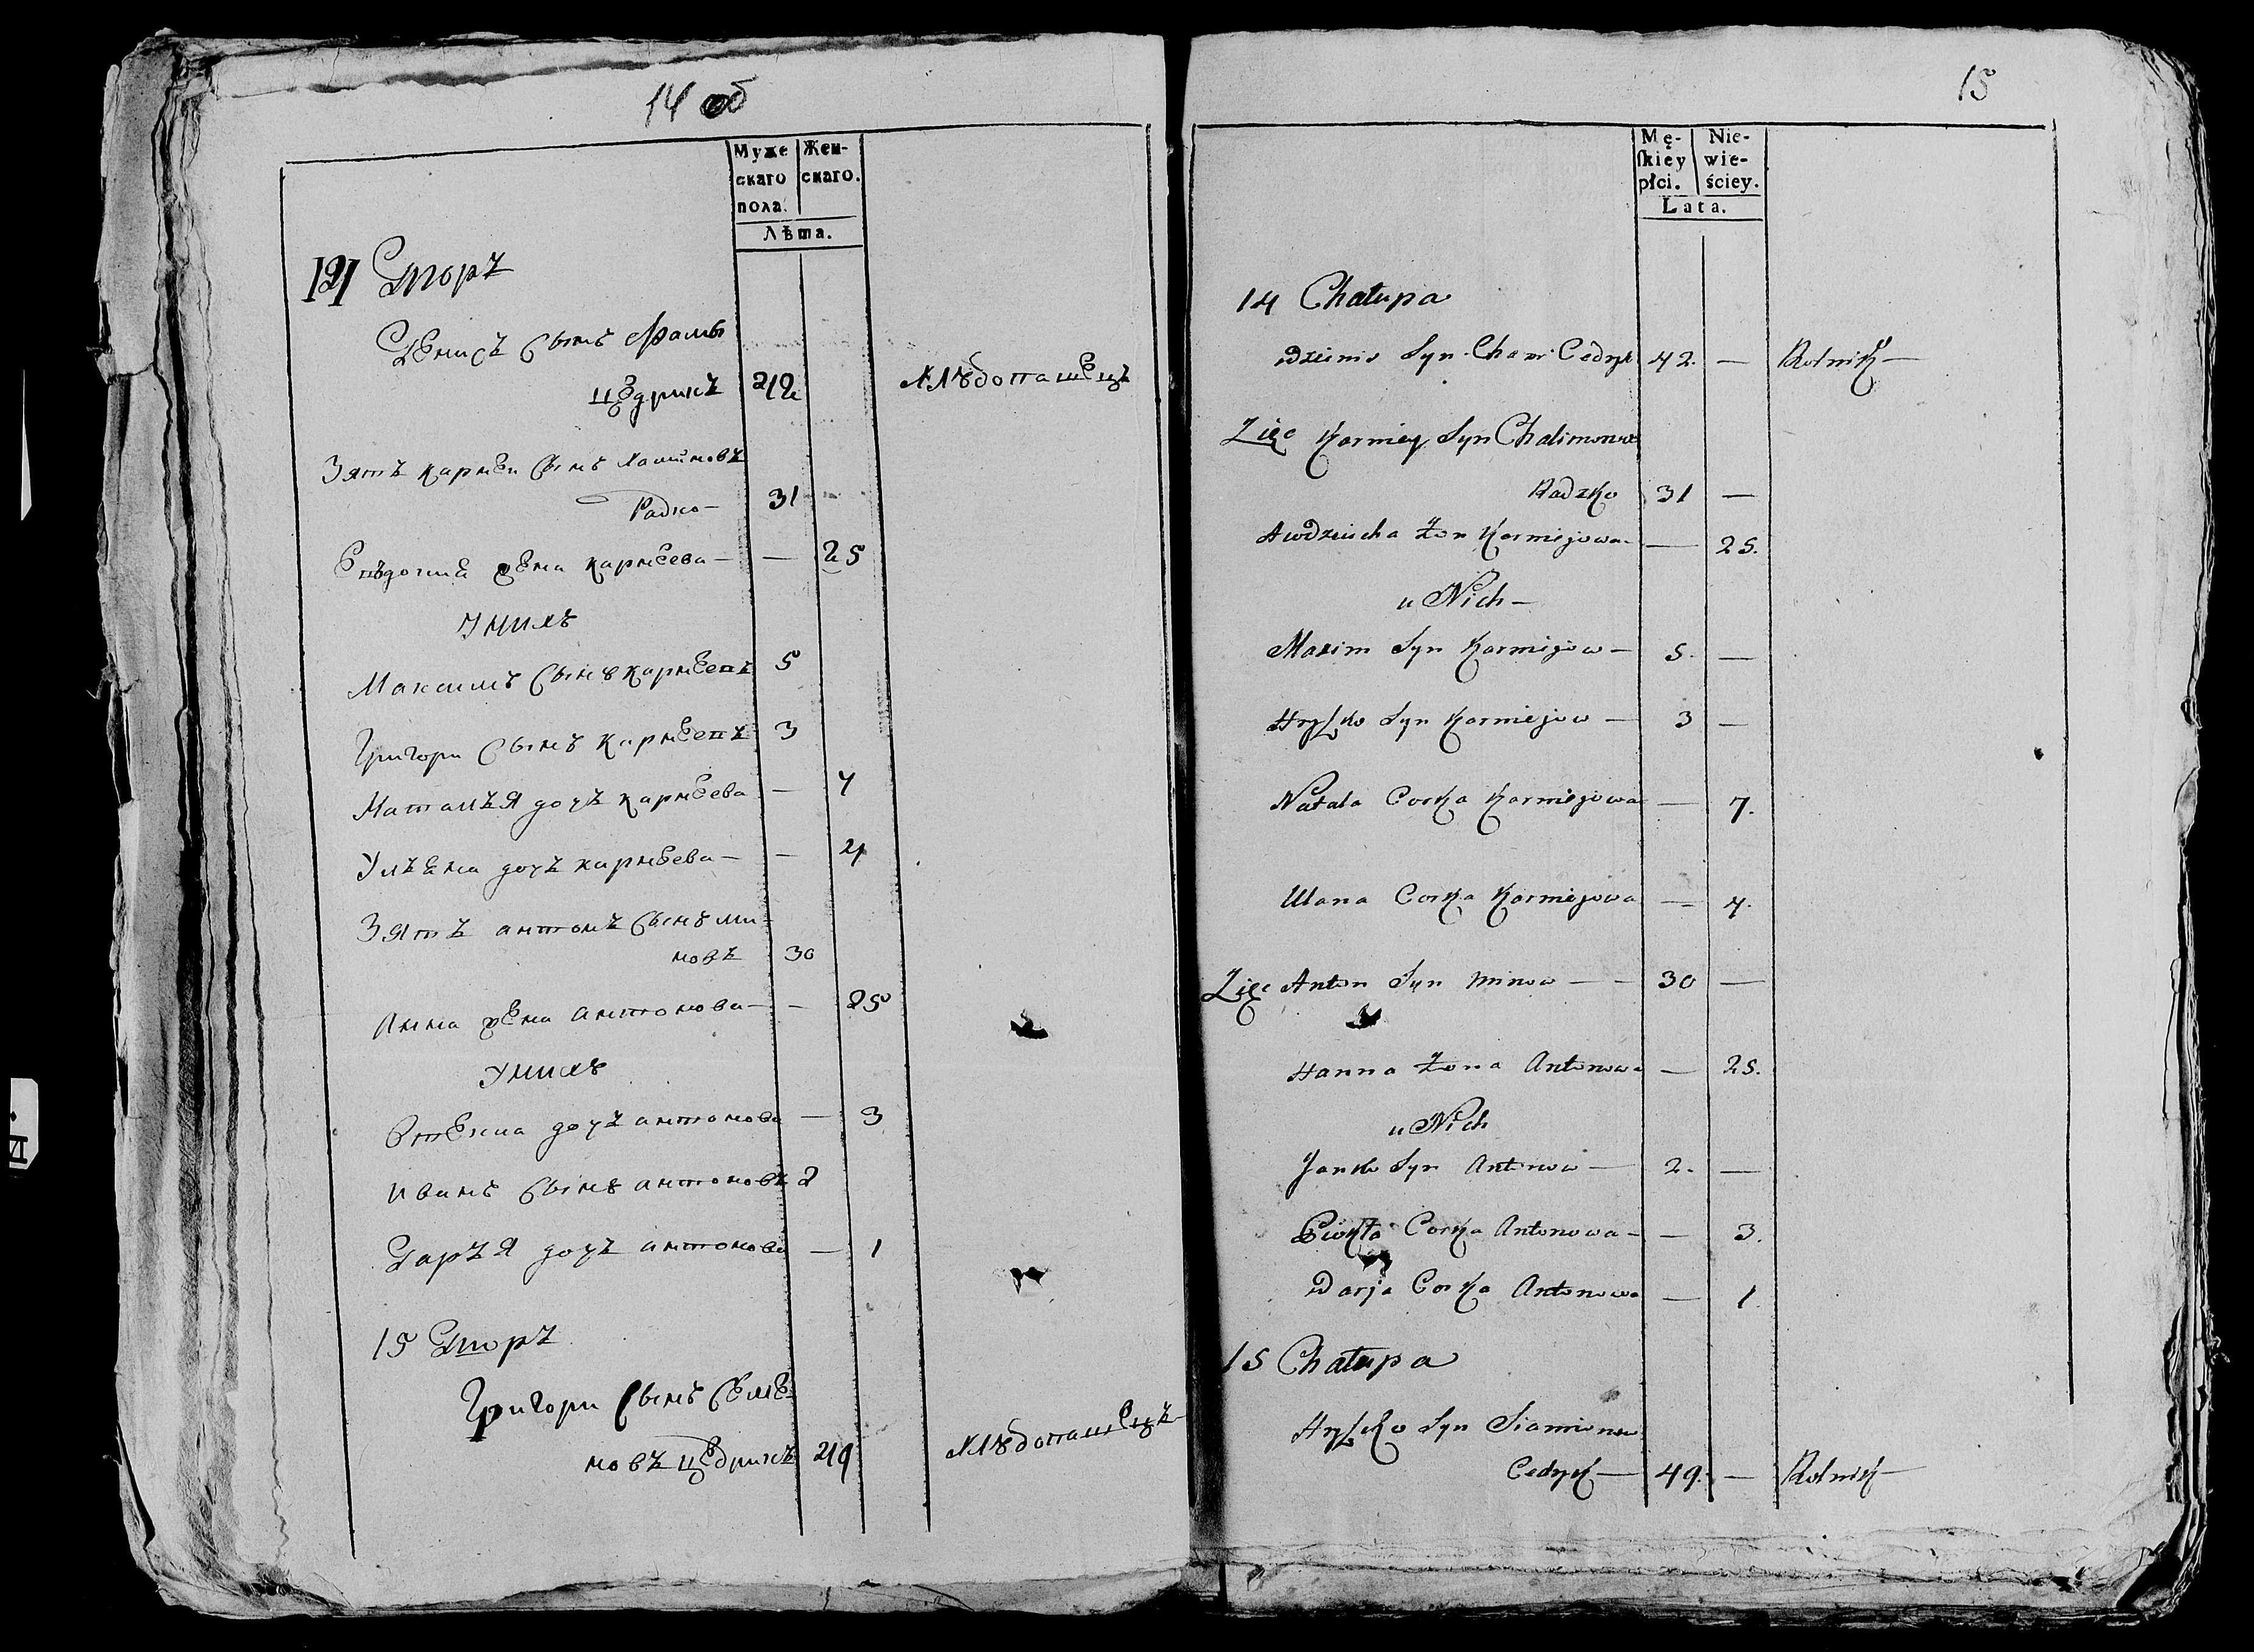 14 об
Муже Жен-
скаго скаго.
пола.
Лѣта.
14 Дворъ
Денисъ сынъ Хамы
Цедрикъ 42 Хлѣбопашецъ
Зять карнѣи сынъ Халимовъ
Радко 31 —
Евдокия жена карнѣева — — 25
У нихъ
Максимъ сынъ карнѣевъ 5
Григори сынъ карнѣевъ 3
Наталья дочь карнѣева — 7
Ульяна дочь карнѣева — — 4
Зять антонъ сынъ ми-
новъ 30
Анна жена антонова — — 25
У нихъ
дочь антонова — 3
Иванъ сынъ антоновъ 2
Дарья дочь антонова — 1
15 Дворъ
Григори сынъ Семе-
новъ Цедрикъ 49 Хлѣбопашецъ
15
Mę- Nie-
ſkiey wie-
płci. ściey.
Lata.
14 Chałupa
Dzienis Syn Cham: Cedryk 42. — Rolnik —
Zięć Karniey Syn Chalimonow
Radzko 31 —
Awdziucha Żon Karniejowa — 25.
u Nich —
Maxim Syn Karniejow — 5. —
Hryſzko Syn Karniejow — 3 —
Natala Corka Karniejowa — 7.
Ulana Corka Karniejowa — 4.
Zięć Anton Syn Minow — — 30 —
Hanna Żona Antonowa — 25.
u Nich
Janko Syn Antonow — 2. —
Fiokła Corka Antonowa — — 3.
Darja Corka Antonowa — 1.
15 Chałupa
Hryſzko Syn Siamionow
Cedryk — 49. — Rolnik —